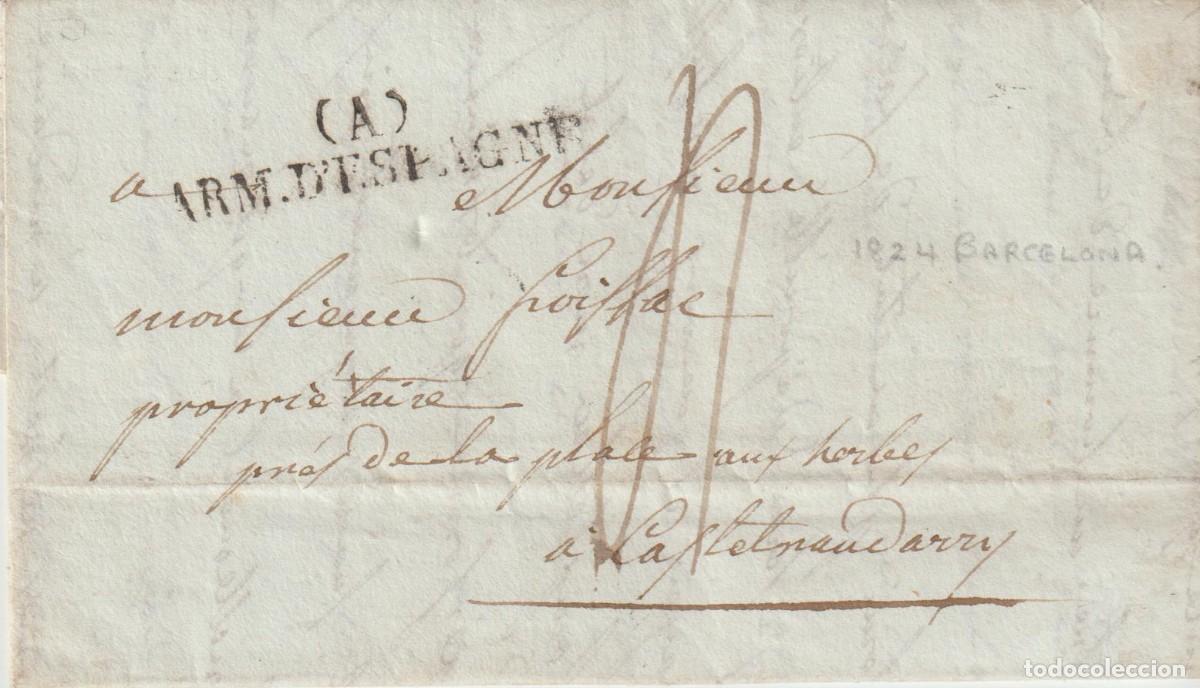 (A)
ARM. D'ESPAGNE
a Monsieur
1824 BARCELONA.
monsieur
propriétaire
prés de la place aux herbes
a Castelnaudarry
todocoleccion